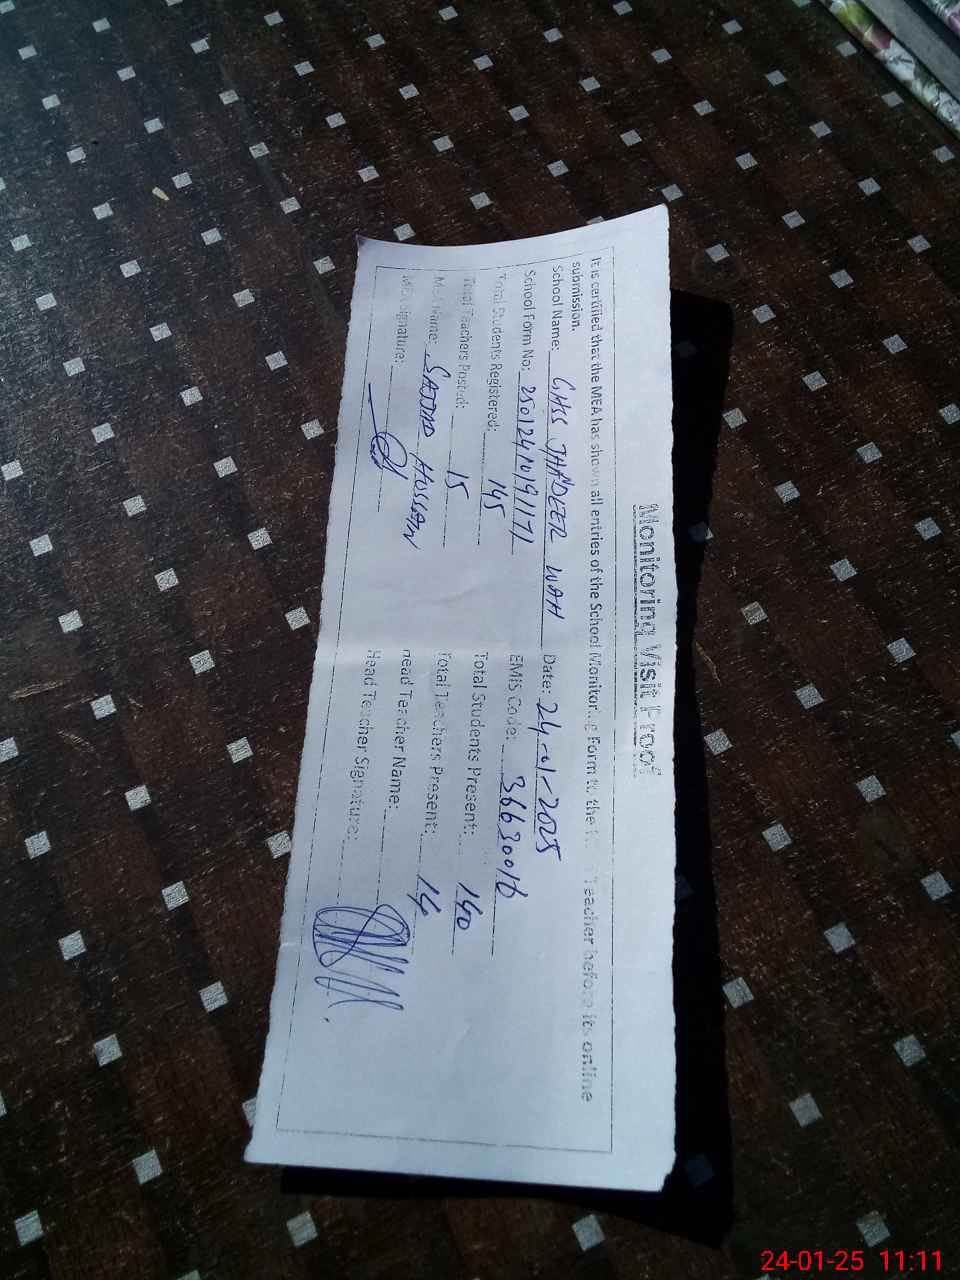 Monitoring Visit Proof
It is certified that the MEA has shown all entries of the School Monitoring Form to the Teacher before its online
submission.
School Name: GHSS JHADEER WAH Date: 24-01-2025
School Form No: 25012410191171 EMIS Code: 36630016
Total Students Registered: 145 Total Students Present: 140
Total Teachers Posted: 15 Total Teachers Present: 14
MEA Name: SAJJAD HUSSAIN Head Teacher Name:
MEA Signature: Head Teacher Signature:
24-01-25 11:11